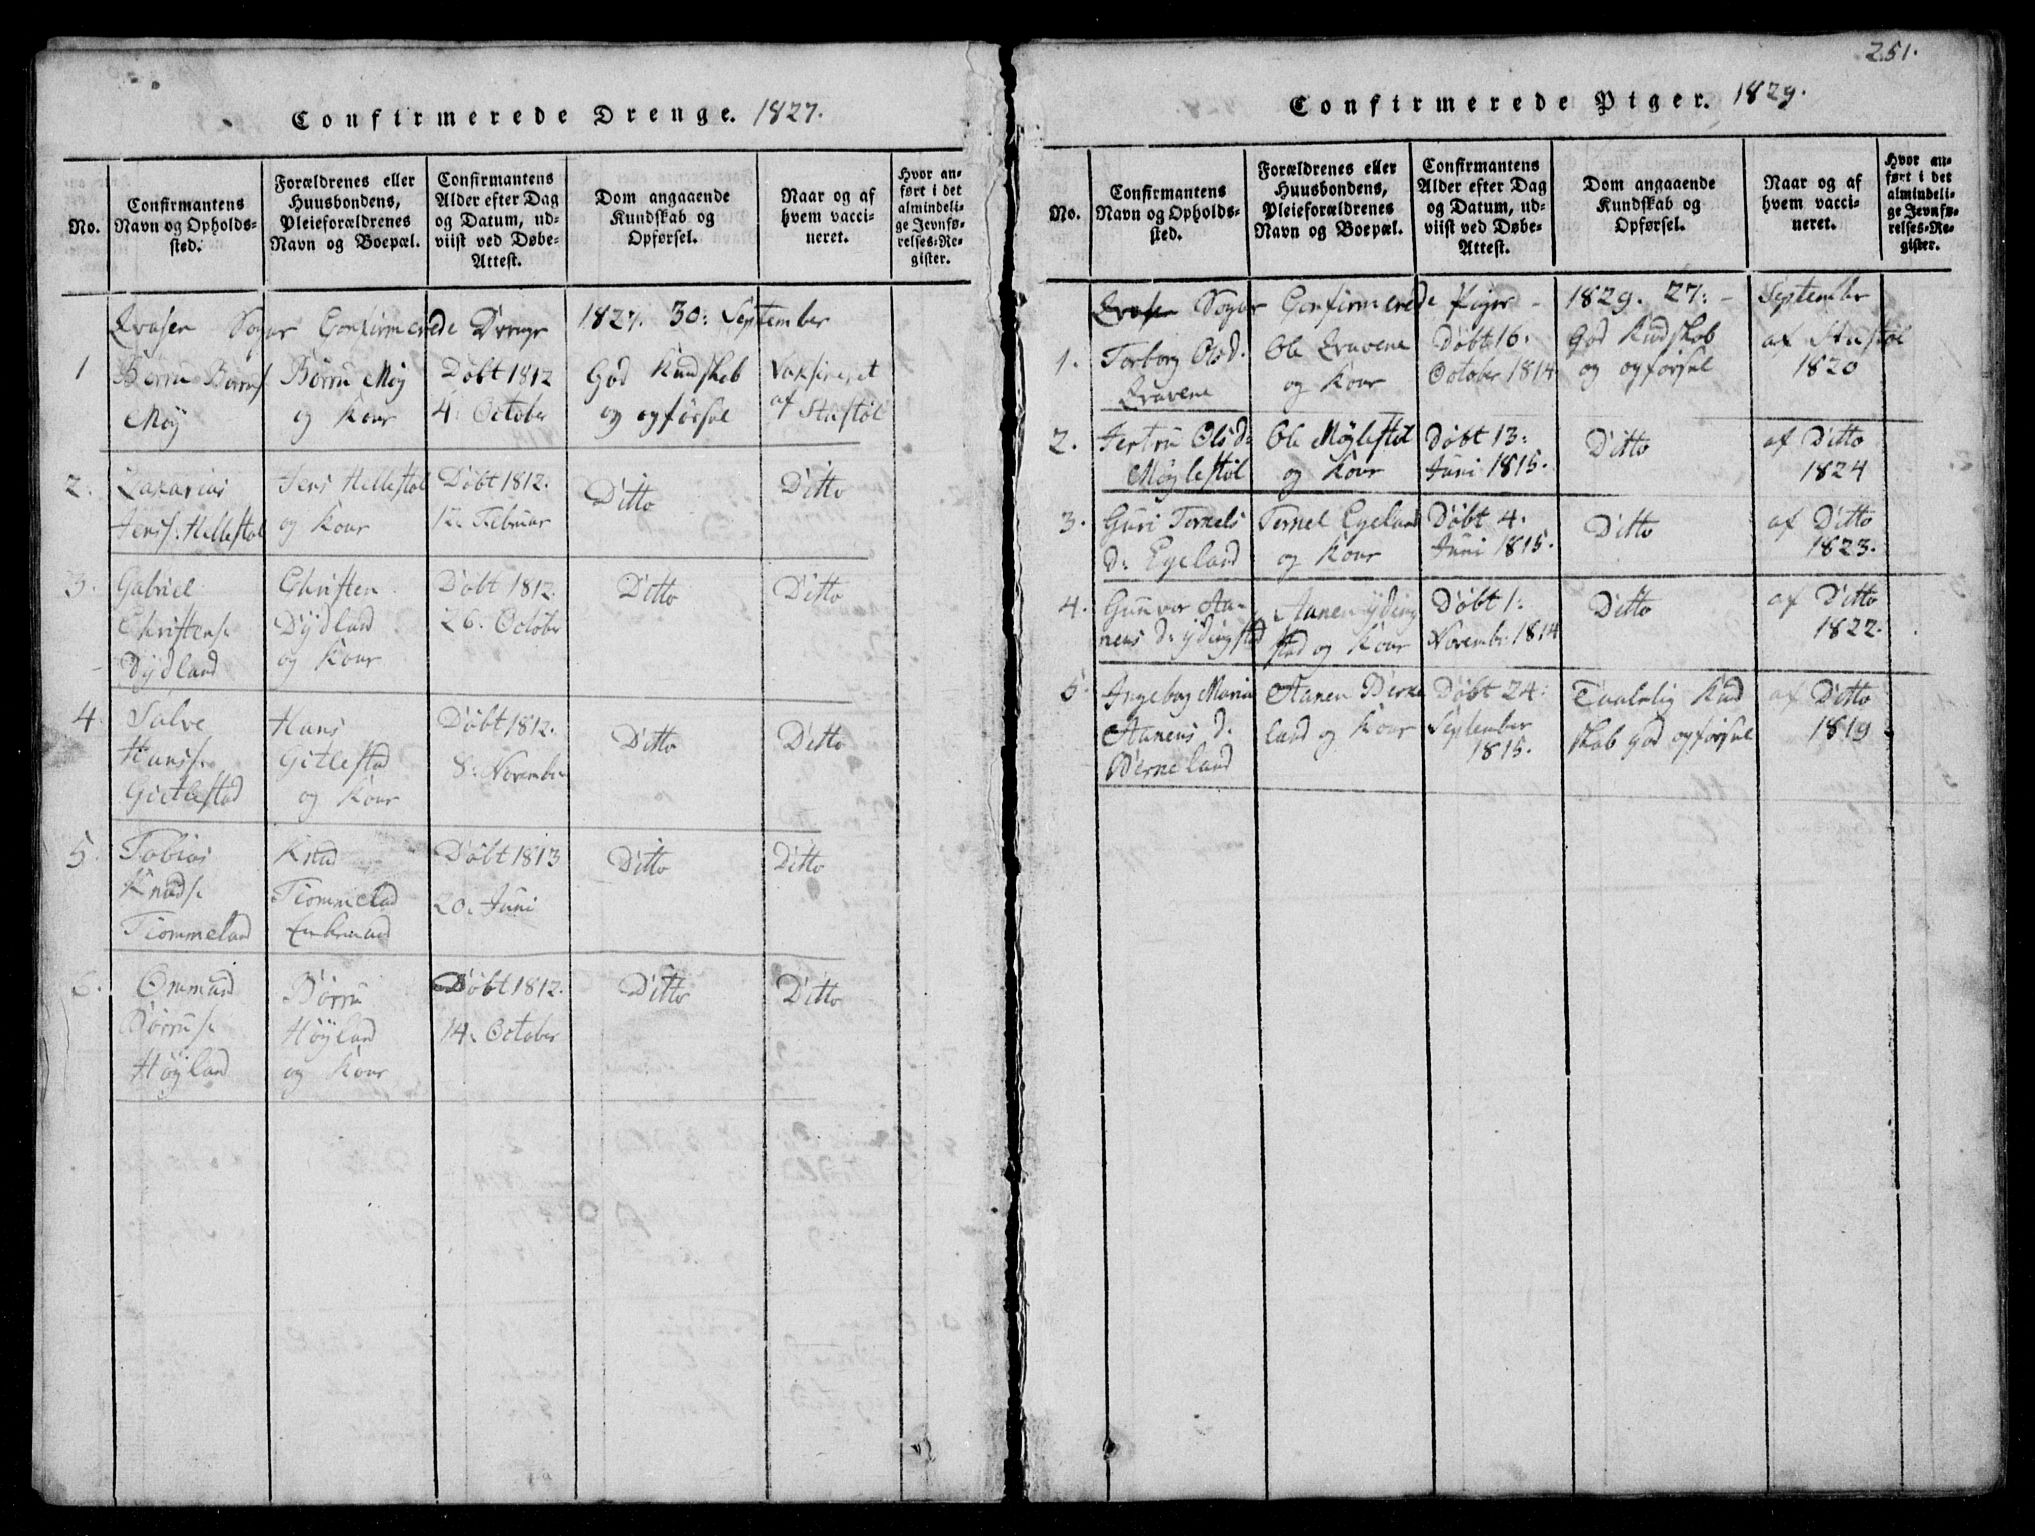 Confirmerede Drenge. 1827.
No.
Confirmantens
Navn og Opholds-
sted.
Forældrenes eller
Huusbondens,
Pleieforældrenes
Navn og Boepæl.
Confirmantens
Alder efter Dag
og Datum, ud-
viist ved Døbe-
Attest.
Dom angaaende
Kundskab og
Opførsel.
Naar og af
hvem vacci-
neret.
Hvor an-
ført i det
almindeli-
ge Jevnfø-
relses-Re-
gister.
Sogar Confirmerede Drenge 1827. 30: September
1
Børru Børrus
Møÿ
Børru Møÿ
og Kone
Døbt 1812
4. October
God Kundskab
og opførsel
Vaksineret
af Stustøl
2.
Zakarias
Jens s. Hellestøl
Jens Hellestøl
og Kone
Døbt 1812.
12. Februar
Ditto
Ditto
3.
Gabriel
Christens.
Dÿdland
Christen
Dÿdland
og Kone
Døbt 1812.
26. October
Ditto
Ditto
4
Salve
Hanss.
Gietlestad
Hans
Gitlestad
og Kone
Døbt 1812.
8. November
Ditto
Ditto
5
Tobias
Knuds.
Tiommeland
Knud
Tiommelad
Enkemand
Døbt 1813
20. Juni
Ditto
Ditto
6.
Ommund
Børrus.
Høÿland
Børru
Høÿland
og Kone
Døbt 1812.
14. October
Ditto
Ditto
251.
Confirmerede Piger. 1829.
No.
Confirmantens
Navn og Opholds-
sted.
Forældrenes eller
Huusbondens,
Pleieforældrenes
Navn og Boepæl.
Confirmantens
Alder efter Dag
og Datum, ud-
viist ved Døbe-
Attest.
Dom angaaende
Kundskab og
Opførsel.
Naar og af
hvem vacci-
neret.
Hvor an-
ført i det
almindeli-
ge Jevnfø-
relses-Re-
gister.
Sogar Confirmerede Piger - 1829. 27: - September
1.
Torborg Olsd.
Qvavene
Ole Qvavene
og Kone
Døbt 16.
October 1814
God Kundskab
og opførsel
af Stustøl
1820
2.
Jertru Olsd:
Møÿlestøl
Ole Møÿlestøl
og Kone
Døbt 13:
Juni 1815.
Ditto
af Ditto
1824
3.
Guri Ternels
d: Egeland
Ternel Egeland
og Kone
Døbt 4.
Juni 1815.
Ditto
af Ditto
1823.
4.
Gunvor Aa-
nens d: ÿdingstad
Aanen ÿding
stad og Kone
Døbt 1.
Novemb: 1814
Ditto
af Ditto
1822.
5.
Ingeborg Maria
Aanens d.
Berneland
Aanen Berne
land og Kone
Døbt 24:
September
1815.
Taalelig Kund
skab god opførsel
af Ditto
1819